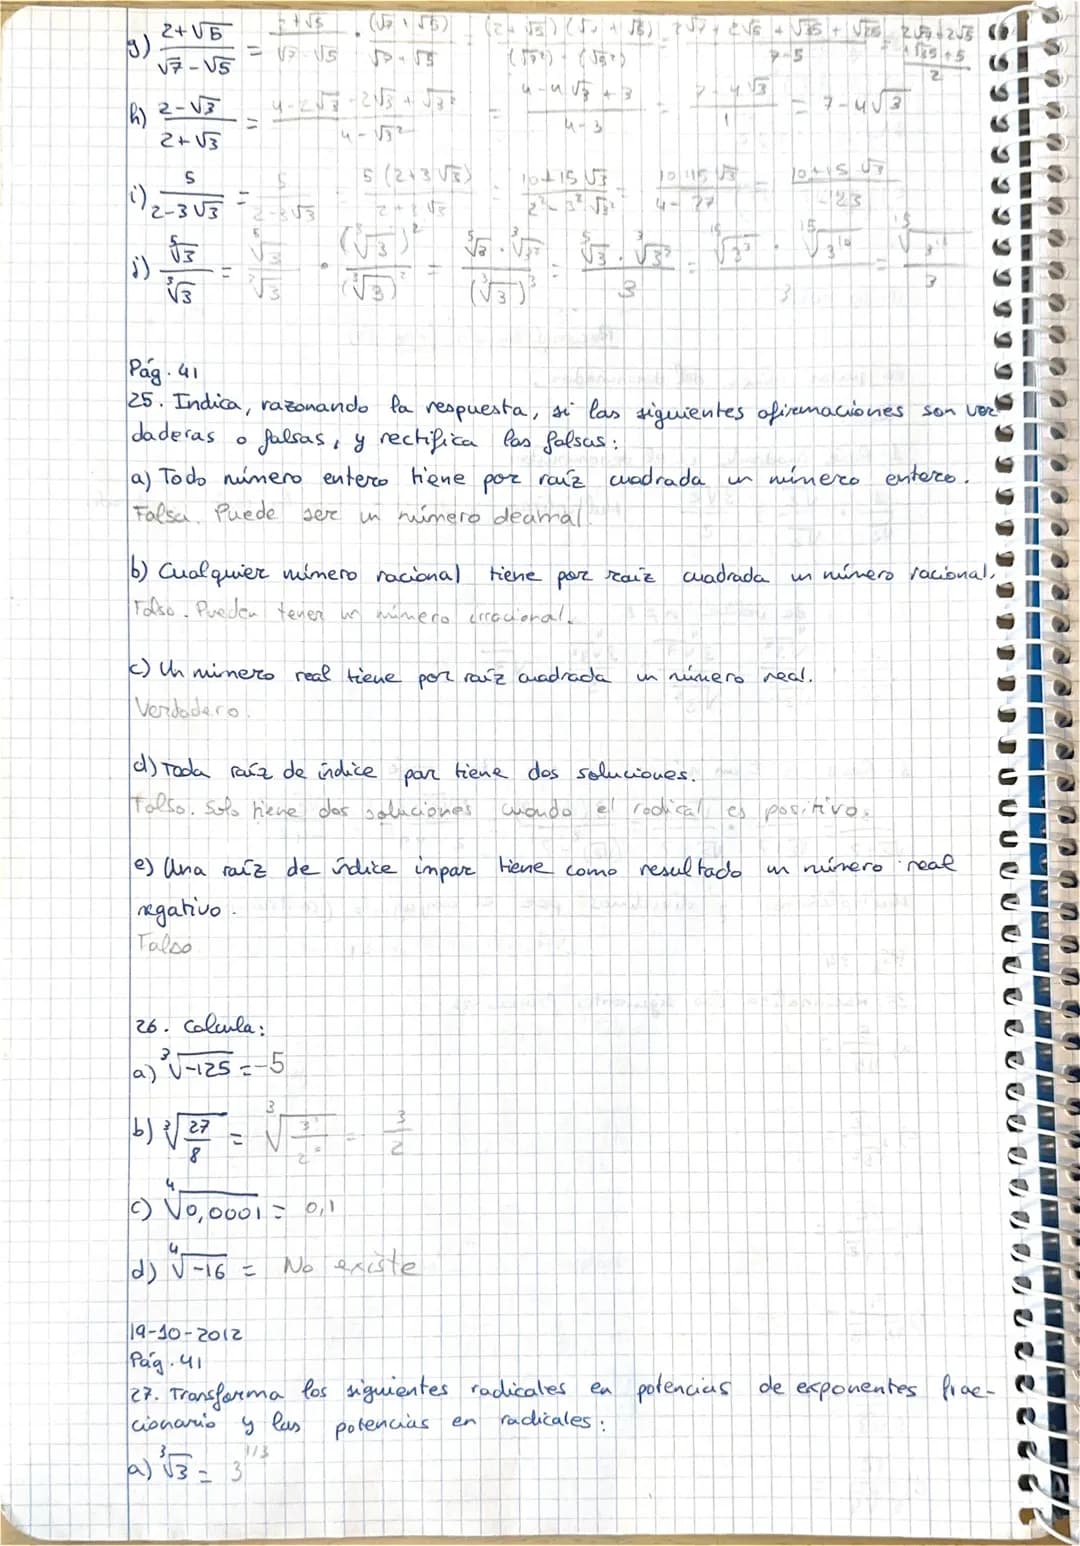 g) (2+√5)/(√7-√5) = (2+√5)/(√7-√5) · (√7+√5)/(√7+√5) = (2+√5)(√7+√5)/((√7²)-(√5²)) = (2√7+2√5+√35+√25)/(7-5) = (2√7+2√5+√35+5)/2
h) (2-√3)/(2+√3) = (4-2√3-2√3+√3²)/(4-√3²) = (4-4√3+3)/(4-3) = (7-4√3)/1 = 7-4√3
i) 5/(2-3√3) = 5/(2-3√3) · 5(2+3√3)/(2+3√3) = (10+15√3)/(2²-3²√3²) = (10+15√3)/(4-27) = (10+15√3)/-23
j) ⁵√3/³√3 = ⁵√3/³√3 · (³√3)²/(³√3)² = ⁵√3·³√3²/(³√3)³ = ⁵√3·³√3²/3 = ¹⁵√3³·¹⁵√3¹⁰/3 = ¹⁵√3¹³/3
Pág. 41
25. Indica, razonando la respuesta, si las siguientes afirmaciones son ver
daderas o falsas, y rectifica las falsas:
a) Todo número entero tiene por raíz cuadrada un número entero.
Falsa. Puede ser un número decimal.
b) Cualquier número racional tiene por raíz cuadrada un número racional.
Falso. Pueden tener un número irracional.
c) Un número real tiene por raíz cuadrada un número real.
Verdadero.
d) Toda raíz de índice par tiene dos soluciones.
Falso. Solo tiene dos soluciones cuando el radical es positivo.
e) Una raíz de índice impar tiene como resultado un número real
negativo.
Falso
26. Calcula:
a) ³√-125 = -5
b) ³√(27/8) = ³√(3³/2³) = 3/2
c) ⁴√0,0001 = 0,1
d) ⁴√-16 = No existe
19-10-2012
Pág. 41
27. Transforma los siguientes radicales en potencias de exponentes frac-
cionario y las potencias en radicales:
a) ³√3 = 3^1/3